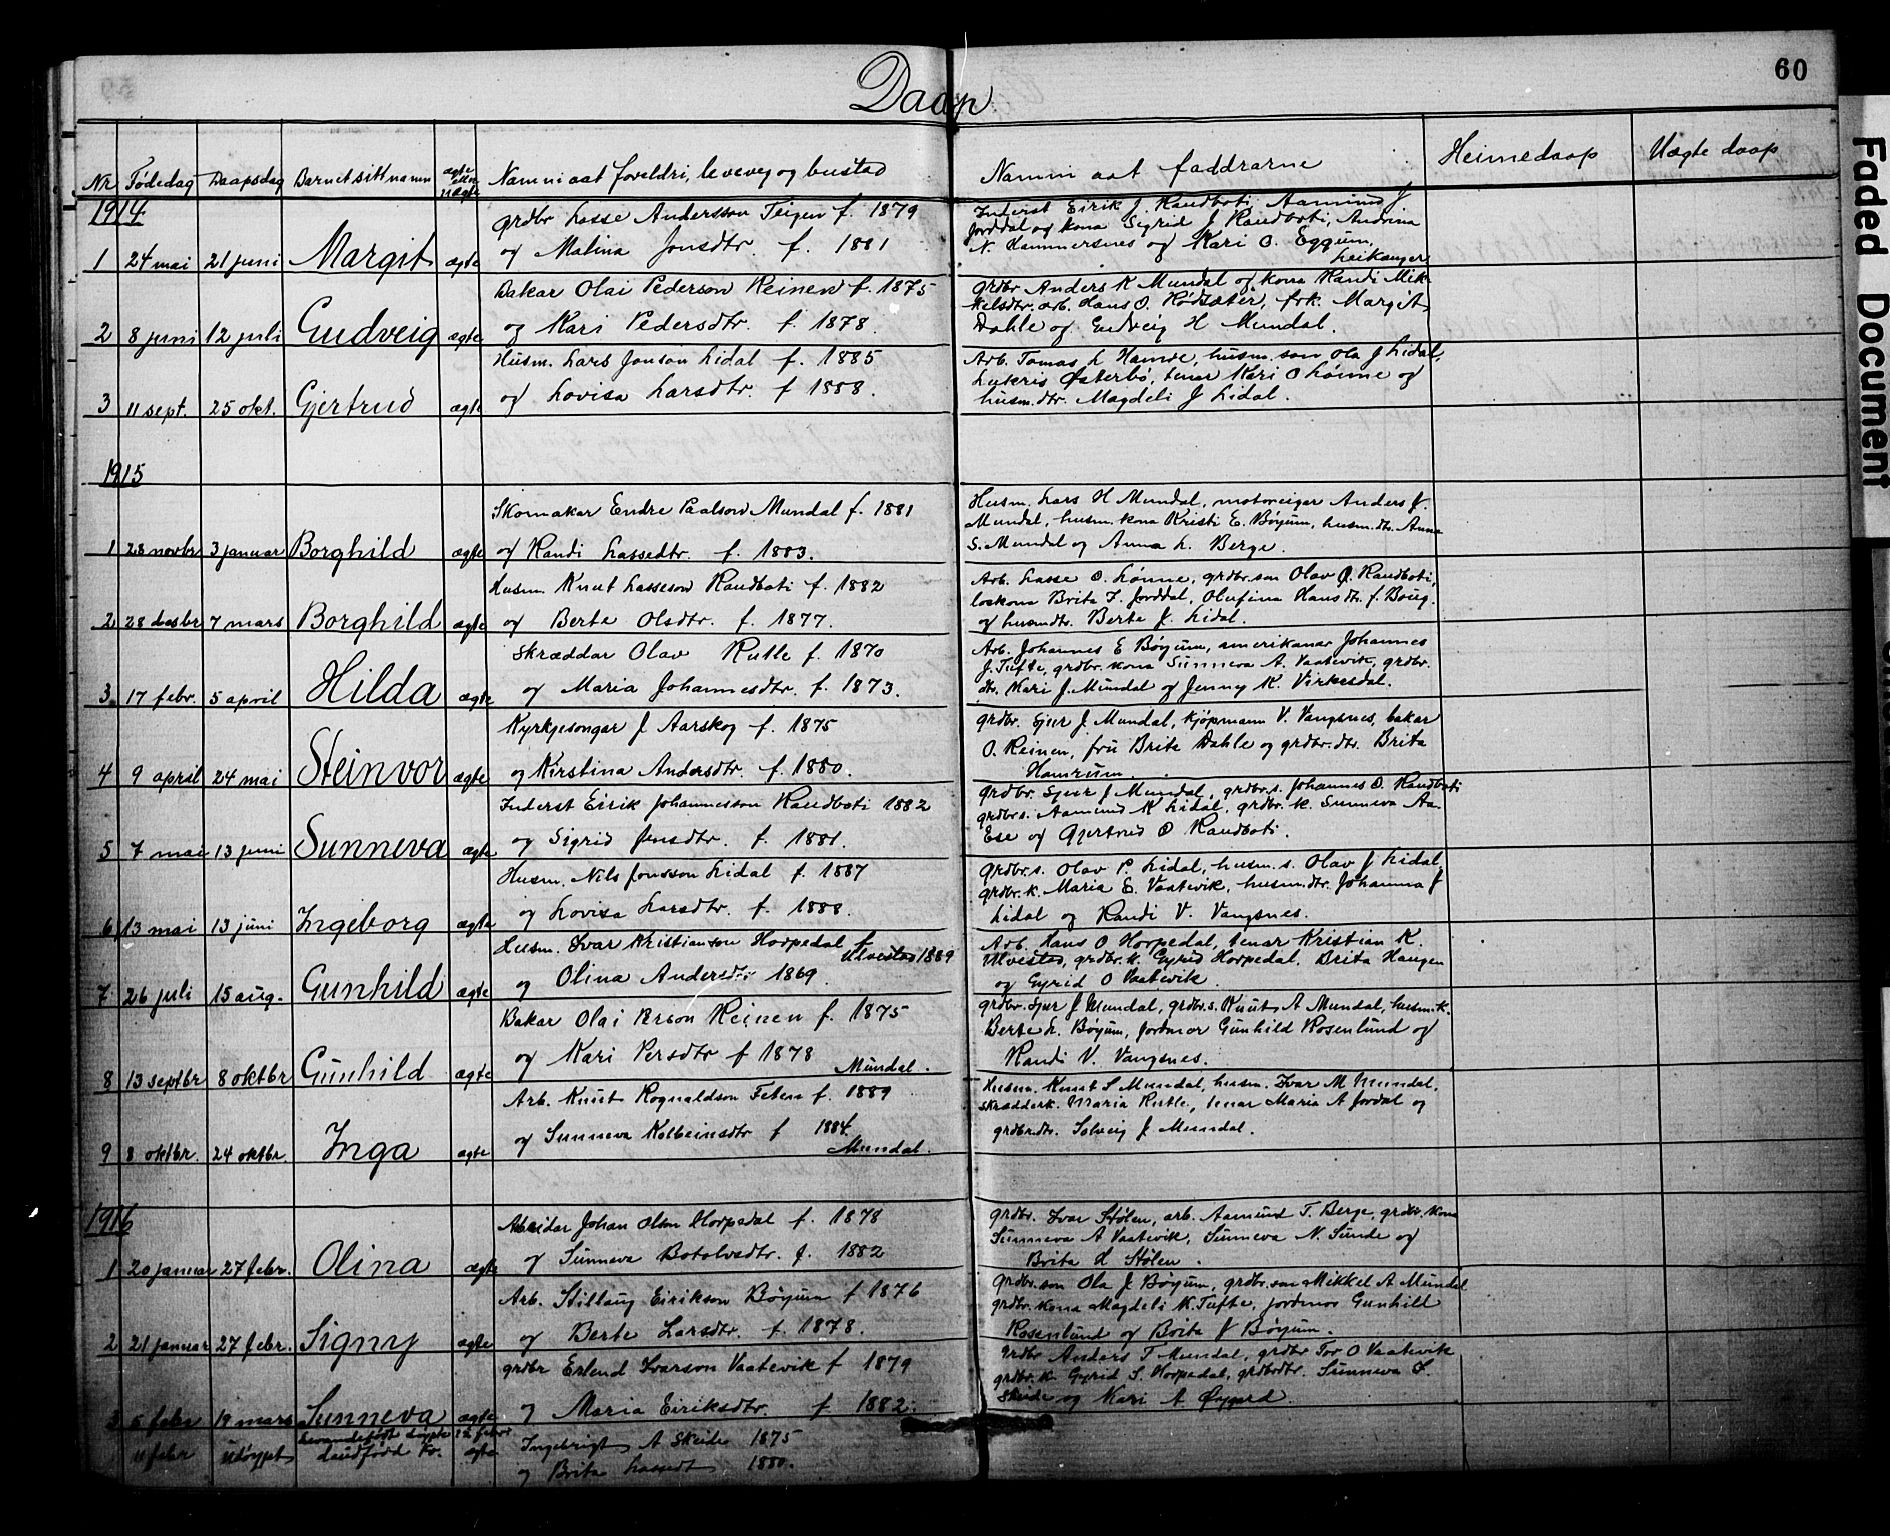 60
Daap
Nr Fødedag Daapsdag Barnet sitt namn ægte elder uægte Namni aat foreldri, leveveg og bustad Namni aat faddrarne Heimedaap Uægte daap
1914
grdbr Lasse Andersson Teigen f. 1879
1 24 mai 21 juni Margit ægte og Malina Jonsdtr. f. 1881
Inderst Eirik J. Randboti, Aamund J
Jorddal og kona Sigrid J Randboti, Andrina
N. Hammersnes og Kari O. Eggum,
Leikanger
Bakar Olai Pederson Reinen f. 1875
2 8 juni 12 juli Gudveig ægte og Kari Pedersdtr. f. 1878.
grdbr Anders K Mundal og kona Randi Mik-
kelsdtr. arb. Hans O. Rødsæter, frk. Margit
Dahle og Gudveig H Mundal.
Husm. Lars Jonson Lidal f. 1885
3 11 sept. 25 okt. Gjertrud ægte og Lovisa Larsdtr. f 1888.
Arb. Tomas L Hamre, husm. son Ola J Lidal,
Lukris Østerbø, tenar Kari O Lønne og
husm.dtr. Magdeli J Lidal.
1915
Skomakar Endre Paalson Mundal f. 1881
1 28 novbr 3 januar Borghild ægte og Randi Lassedtr. f. 1883.
Husm. Lars H Mundal, motoreigar Anders J.
Mundal, husm. kona Kristi E. Bøyum, husm.dtr. Anna
S. Mundal og Anna L. Berge.
Husm. Knut Lasseson Randboti f. 1882
2 28 desbr 7 mars Borghild ægte og Berte Olsdtr. f. 1877.
Arb. Lasse O. Lønne, grdbr.son Olav O. Randboti,
Brita I. Jorddal, Olufina Hansdtr. f.
og husmdtr. Berta J. Lidal.
Skræddar Olav Rutle f. 1870
3 17 febr. 5 april Hilda ægte og Maria Johannesdtr. f. 1873.
Arb. Johannes E Bøyum, amerikanar Johannes
J. Tufte, grdbr. kona Sunneva A. Vaatevik, grdbr.
dtr. Kari J. Mundal og Jenny K. Virkesdal.
Kyrkjesongar J Aarskog f. 1875
4 9 april 24 mai Steinvor ægte og Kirstina Andersdtr. f. 1880.
grdbr. Sjur J. Mundal, kjøpmann V. Vangsnes, bakar
O. Reinen, fru Brite Dahle og grdbr.dtr. Brita
Hamrum.
Inderst Eirik Johannesson Randboti 1882
5 7 mai 13 juni Sunneva ægte og Sigrid Jensdtr. f. 1881.
grdbr. Sjur J Mundal, grdbr.s. Johannes O. Randboti
grdbr.s. Aamund K Lidal, grdbr. k. Sunneva Aa.
Ese og Gjertrud O Randboti.
Husm. Nils Jonsson Lidal f. 1887
6 13 mai 13 juni Ingeborg ægte og Lovisa Larsdtr. f. 1888.
Grdbr.s. Olav P. Lidal, husm. s. Olav J Lidal
grdbr. k. Maria E. Vaatevik, husm.dtr. Johanna J
Lidal og Randi V. Vangsnes.
Husm. Ivar Kristianson Horpedal f
Ulvestad 1889
7 26 juli 15 aug. Gunhild ægte og Olina Andersdtr 1869.
Arb. Hans O Horpedal, tenar Kristian K.
Ulvestad, grdbr. k. Gyrid Horpedal, Brita Haugen
og Gyrid O Vaatevik.
Bakar Olai Person Reinen f. 1875
8 13 septbr 8 oktbr Gunhild ægte og Kari Persdtr f 1878 Mundal.
grdbr. Sjur J Mundal, grdbr.s. Knut A Mundal, husm.k.
Berte L. Bøyum, jordmor Gunhild Rosenlund og
Randi V. Vangsnes.
Arb. Knut Rognaldson Feten f. 1889
9 8 oktbr. 24 oktbr. Inga ægte og Sunneva Kolbeinsdtr f 1884. Mundal.
Husm. Knut S Mundal, husm. Ivar M Mundal,
skrædderk. Maria Rutle, tenar Maria A Jordal og
grdbr.dtr. Solveig J. Mundal.
1916
Arbeidar Johan Olson Horpedal f. 1878
1 20 januar 27 febr. Olina ægte og Sunneva Botolvsdtr. f. 1882
grdbr. Ivar Stølen, arb. Aamund T. Berge, grdbr. kona
Sunneva A Vaatevik, Sunneva N. Sunde og
Brita H Stølen.
Arb. Stillaug Eirikson Bøyum f 1876
2 21 januar 27 febr. Signy ægte og Berte Larsdtr. f. 1878.
grdbr. son Ola J. Bøyum, grdbr. son Mikkel A Mundal
grdbr. kona Magdeli M. Tufte, jordmor Gunhild
Rosenlund og Brita J Bøyum.
grdbr Erlend Ivarson Vaatevik f 1879
3 5 febr 19 mars Sunneva ægte og Maria Eiriksdtr. f 1882.
grdbr Anders T Mundal, grdbr Tor O Vaatevik
grdbr. k. Gyrid S. Horpedal, grdbrdtr. Sunneva I.
Skeide og Kari A Øygard.
11 febr udøypt daudfødd kv. ægte Ingebrigt A Skeide 1875
og Brita Lassedt 1880.
Faded Document